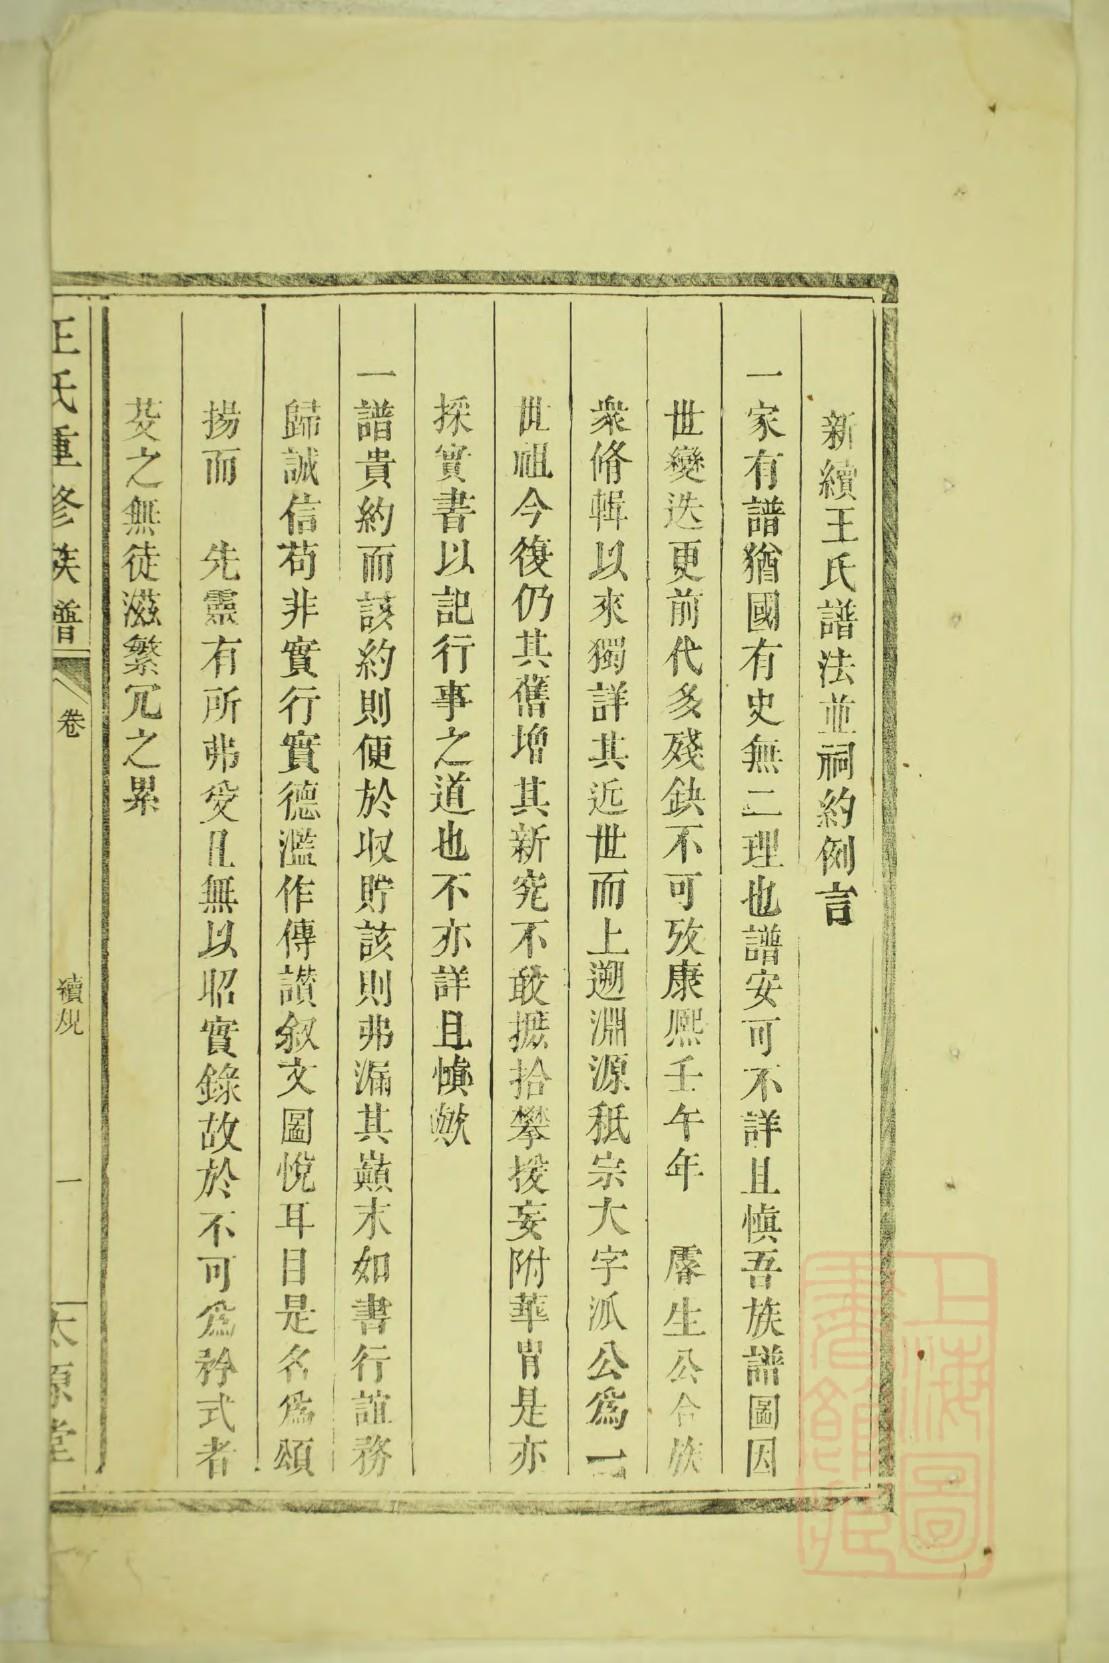 新續王氏譜法並祠約例言
一家有譜猶國有史無二理也譜安可不詳且愼吾族譜圖因
世變迭更前代多殘缺不可攷康熈壬午年　廕生公合族
衆脩輯以來獨詳其近世而上遡淵源秪宗大字派公爲一
世祖今復仍其舊增其新究不敢摭拾攀援妄附華胄是亦
採實書以記行事之道也不亦詳且愼歟
一譜貴約而該約則便於收貯該則弗漏其巔末如書行誼務
歸誠信苟非實行實德濫作傳讃叙文圖悅耳目是名爲頌
揚而　先靈有所弗受且無以昭實錄故於不可爲矜式者
芟之無徒滋繁冗之累
王氏重修族譜
卷
續規
一
太原堂
上海圖書館藏